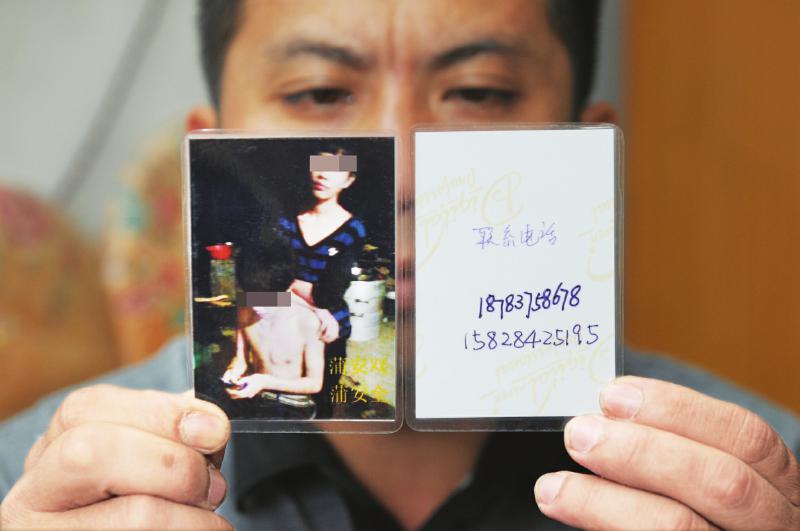 蒲安双
蒲安全
联系电话
18783758678
15828425195